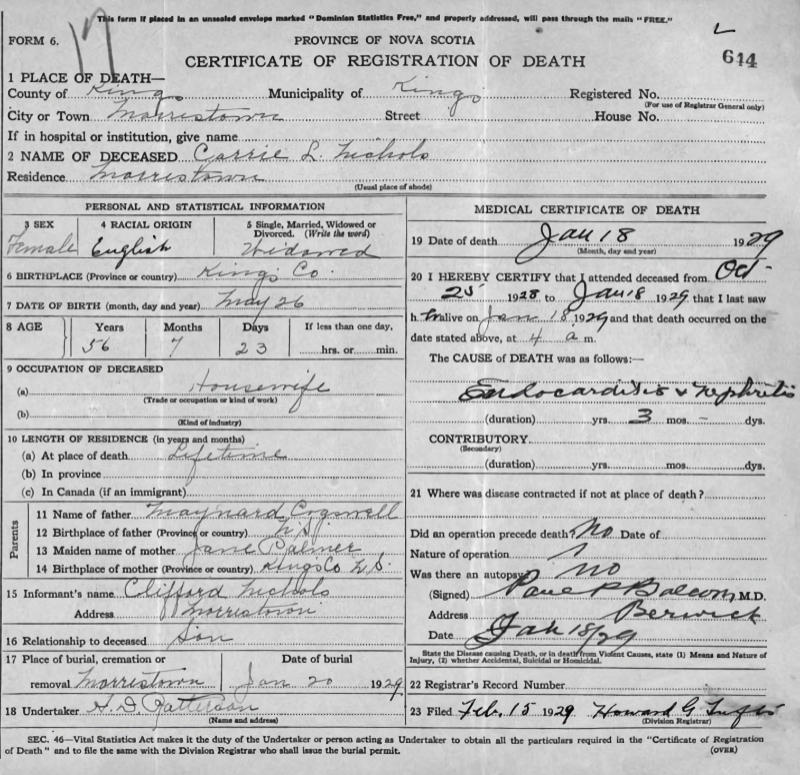 This form if placed in an unsealed envelope marked "Dominion Statistics Free," and properly addressed, will pass through the mails "FREE."
FORM 6. 17 PROVINCE OF NOVA SCOTIA
CERTIFICATE OF REGISTRATION OF DEATH 644
1 PLACE OF DEATH—
County of Kings Municipality of Kings Registered No.
(For use of Registrar General only)
City or Town Morristown Street House No.
If in hospital or institution, give name
2 NAME OF DECEASED Carrie L. Nichols
Residence Morristown
(Usual place of abode)
PERSONAL AND STATISTICAL INFORMATION
3 SEX 4 RACIAL ORIGIN 5 Single, Married, Widowed or Divorced. (Write the word)
Female English Widowed
6 BIRTHPLACE (Province or country) Kings Co.
7 DATE OF BIRTH (month, day and year) May 26
8 AGE Years Months Days If less than one day,
56 7 23 hrs. or min.
9 OCCUPATION OF DECEASED
(a) Housewife
(Trade or occupation or kind of work)
(b)
(Kind of industry)
10 LENGTH OF RESIDENCE (in years and months)
(a) At place of death Lifetime
(b) In province
(c) In Canada (if an immigrant)
Parents
11 Name of father Maynard Cogswell
12 Birthplace of father (Province or country) N.S.
13 Maiden name of mother Jane Palmer
14 Birthplace of mother (Province or country) Kings Co N.S.
15 Informant's name Clifford Nichols
Address Morristown
16 Relationship to deceased Son
17 Place of burial, cremation or removal Morristown Date of burial Jan 20 1929
18 Undertaker H. D. Patterson
(Name and address)
MEDICAL CERTIFICATE OF DEATH
19 Date of death Jan 18 1929
(Month, day and year)
20 I HEREBY CERTIFY that I attended deceased from Oct
25 1928 to Jan 18 1929 that I last saw
h er alive on Jan 18 1929 and that death occurred on the
date stated above, at 4 a m.
The CAUSE OF DEATH was as follows:—
Endocarditis & Nephritis
(duration) yrs. 3 mos. – dys.
CONTRIBUTORY
(Secondary)
(duration) yrs. mos. dys.
21 Where was disease contracted if not at place of death?
Did an operation precede death? No Date of
Nature of operation
Was there an autopsy? No
(Signed) M.D.
Address Berwick
Date Jan 18/29
State the Disease causing Death, or in death from Violent Causes, state (1) Means and Nature of
Injury, (2) whether Accidental, Suicidal or Homicidal.
22 Registrar's Record Number
23 Filed Feb. 15 1929 Howard G.
(Division Registrar)
SEC. 46—Vital Statistics Act makes it the duty of the Undertaker or person acting as Undertaker to obtain all the particulars required in the "Certificate of Registration
of Death" and to file the same with the Division Registrar who shall issue the burial permit. (OVER)